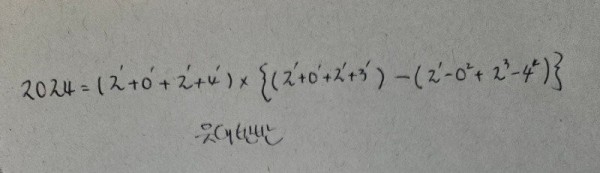 2024 = (2¹+0¹+2¹+4¹) × {(2¹+0¹+2¹+3¹) − (2¹−0²+2³−4²)}